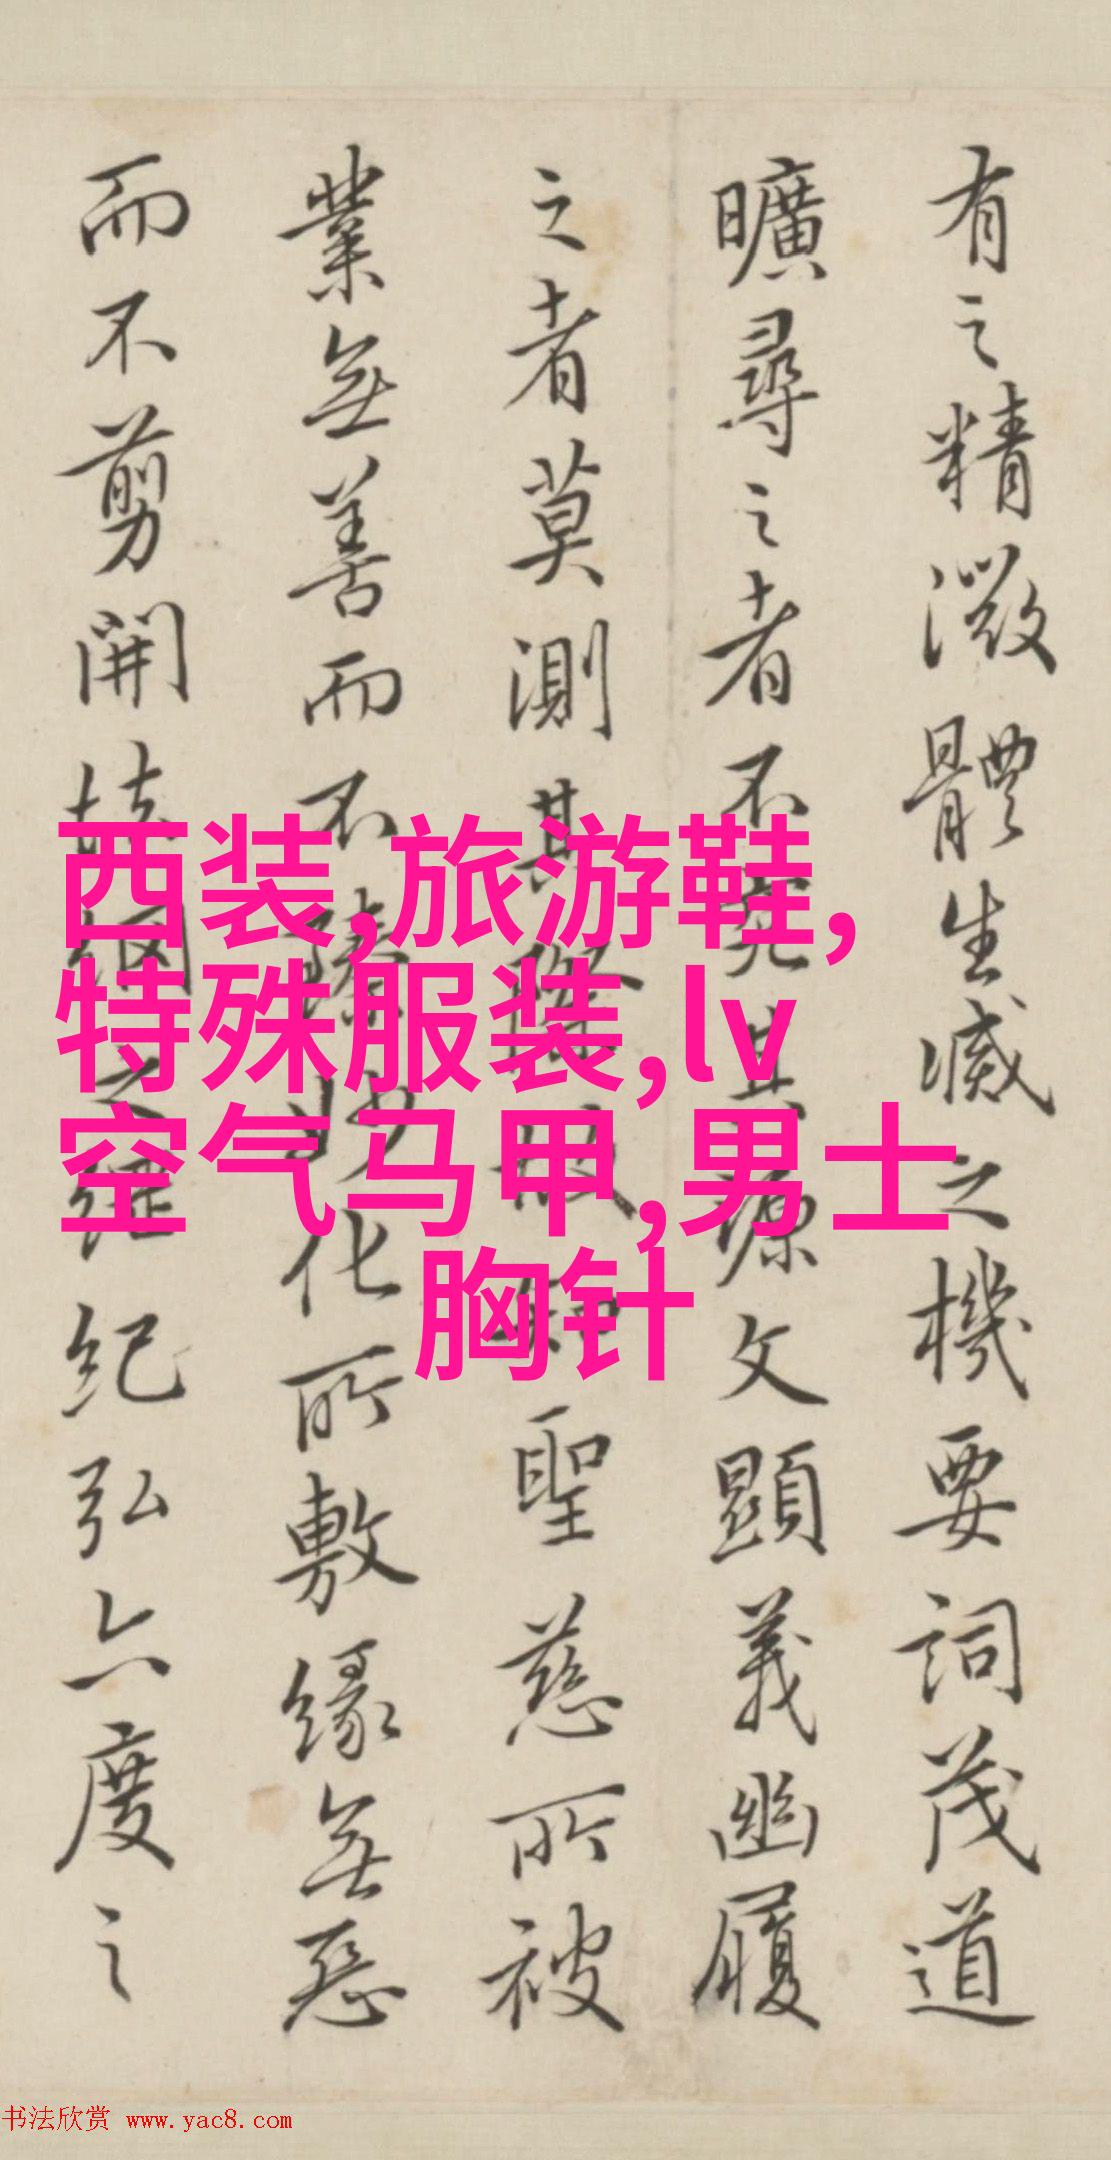 有之精微體生滅之機要詞茂道
曠尋之者不究其源文顯義幽履
之者莫測其際故聖慈所被
業無善而不臻妙化所敷緣無惡
而不剪開法網之綱紀弘六度之
西装,旅游鞋,
特殊服装,lv
空气马甲,男士
胸针
书法欣赏 www.yac8.com